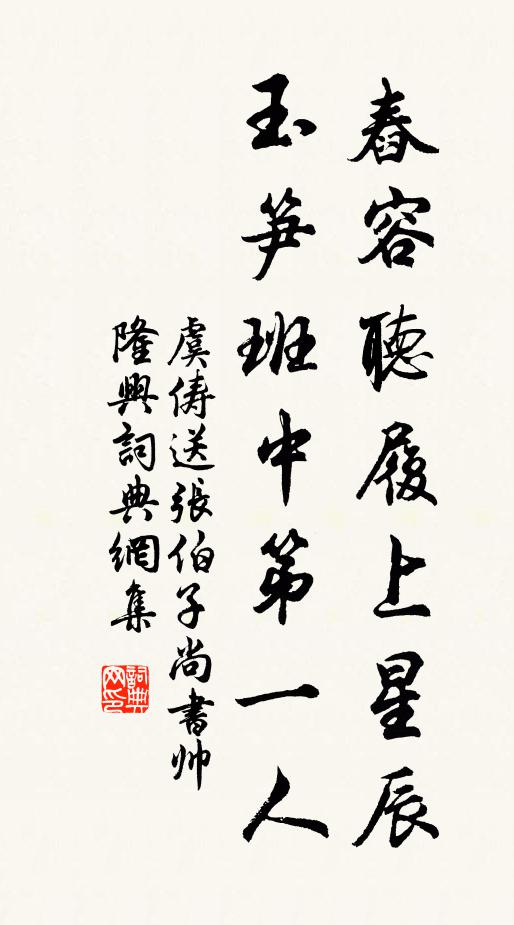 舂容聽履上星辰
玉笋班中第一人
虞儔送張伯子尚書帅
隆興詞典網集
詞典网印